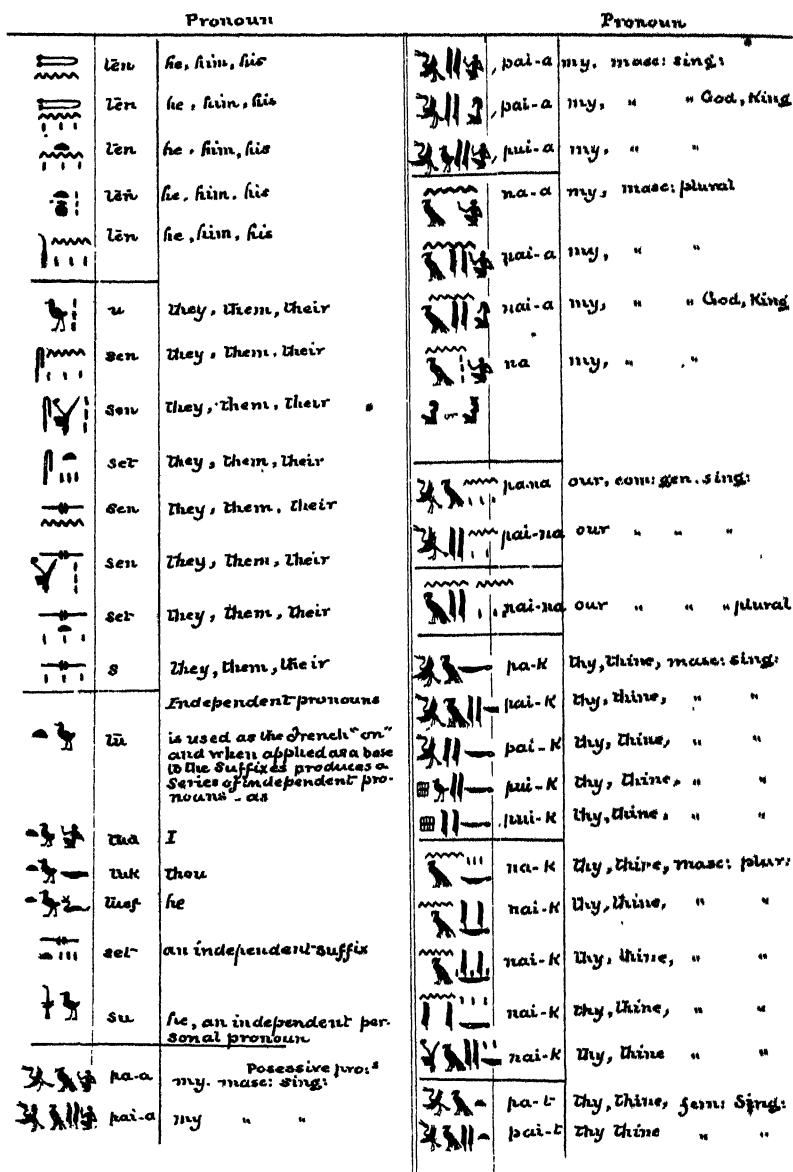 Pronoun
ten he, him, his
ten he, him, his
ten he, him, his
ten he, him, his
ten he, him, his
u they, them, their
sen they, them, their
sen they, them, their
set they, them, their
sen they, them, their
sen they, them, their
set they, them, their
s they, them, their
Independent pronouns
tū is used as the French "on"
and when applied as a base
to the Suffixes produces a
Series of independent pro-
nouns - as
tua I
tuk thou
tuef he
set an independent suffix
su he, an independent per-
sonal pronoun
Posessive pro:s
pa-a my. masc: sing:
pai-a my " "
Pronoun
pai-a my, masc: sing:
pai-a my, " " God, King
pui-a my, " "
na-a my, masc: plural
nai-a my, " "
nai-a my, " " God, King
na my, " "
or
pa-na our, com: gen. sing:
pai-na our " " "
nai-na our " " " plural
pa-k thy, thine, masc: sing:
pai-k thy, thine, " "
pai-k thy, thine, " "
pui-k thy, thine, " "
pui-k thy, thine, " "
na-k thy, thine, masc: plur:
nai-k thy, thine, " "
nai-k thy, thine, " "
nai-k thy, thine, " "
nai-k thy, thine " "
pa-t thy, thine, fem: Sing:
pai-t thy thine " "